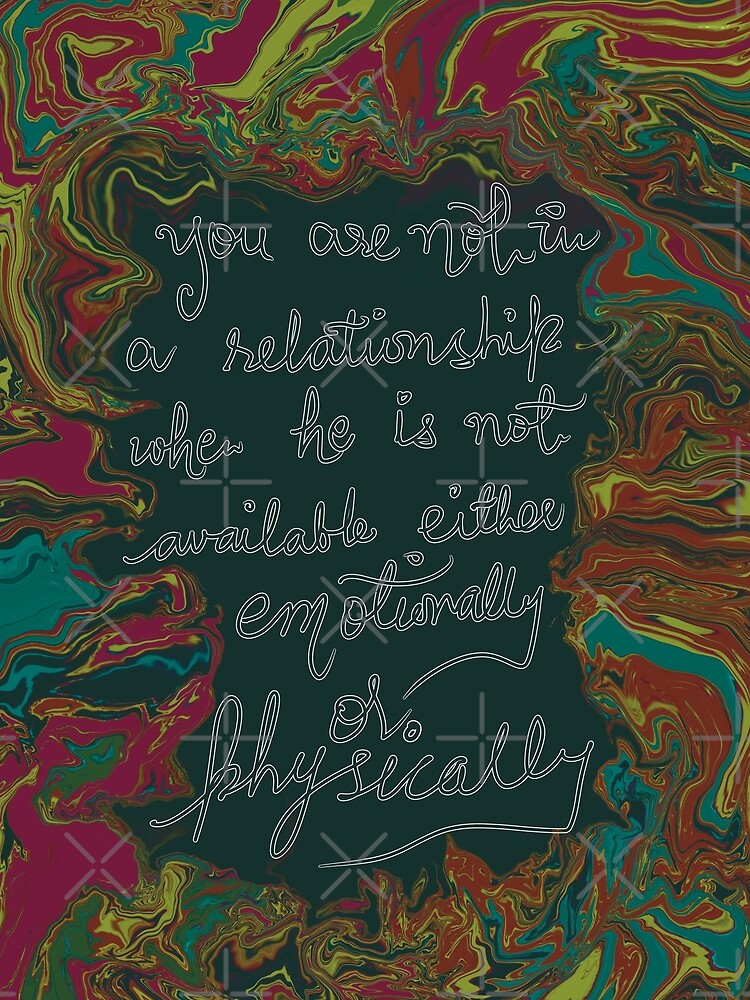 you are not in
a relationship
when he is not
available either
emotionally
or
physically